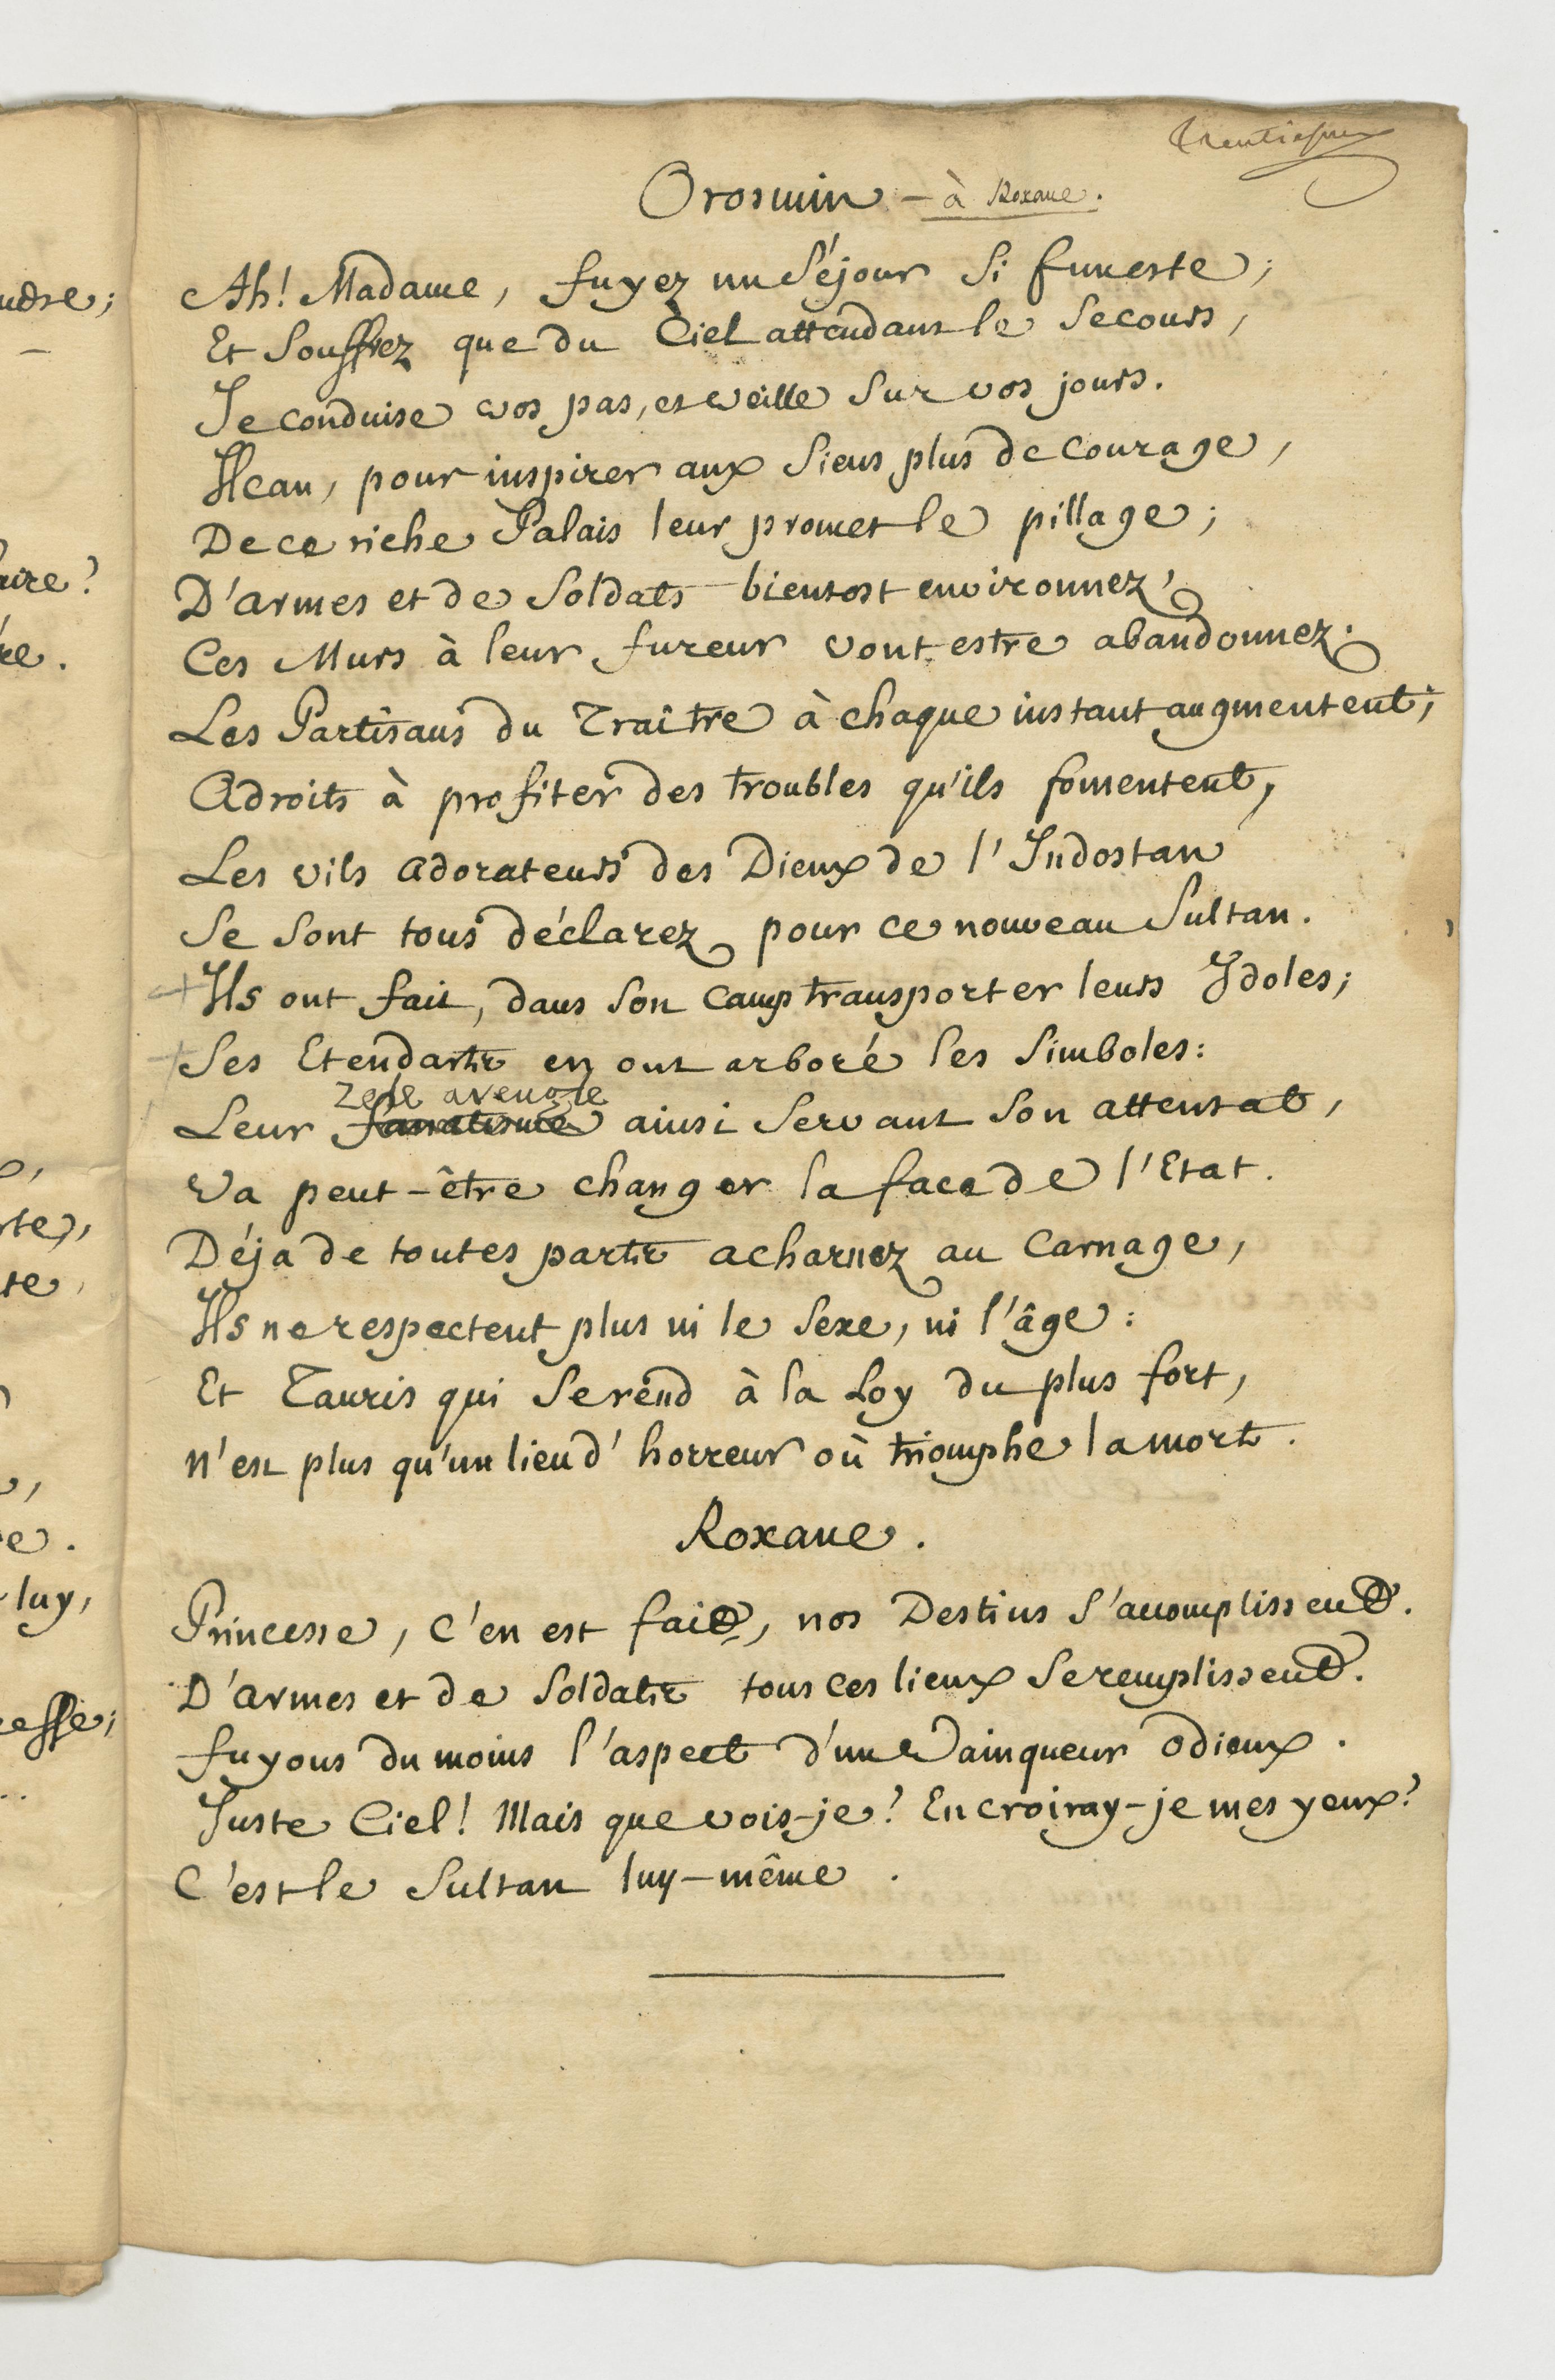 Orosmin - à Roxane.
Ah! Madame, fuyez un Séjour Si funeste;
Et Souffrez que du Ciel attendant le Secours,
Je conduise vos pas, et veille Sur vos jours.
Ilcan, pour inspirer aux Siens plus de courage,
De ce riche Palais leur promet le pillage;
D'armes et de Soldats bientost environnez,
Ces Murs à leur fureur vont estre abandonnez.
Les Partisans du Traître à chaque instant augmentent;
Adroits à profiter des troubles qu'ils fomentent,
Les vils adorateurs des Dieux de l'Indostan
Se Sont tous déclarez pour ce nouveau Sultan.
+ Ils ont fait, dans Son Camp transporter leurs Idoles;
+ Ses Etendarts en ont arboré les Simboles:
zele aveugle
Leur fanatisme ainsi Servant Son attentat,
Va peut-être changer la face de l'Etat.
Déja de toutes parts acharnez au Carnage,
Ils ne respectent plus ni le Sexe, ni l'âge:
Et Tauris qui Se rend à la Loy du plus fort,
N'est plus qu'un lieu d'horreur où triomphe la mort.
Roxane.
Princesse, C'en est fait, nos Destins S'accomplissent.
D'armes et de Soldats tous ces lieux Se remplissent.
fuyons du moins l'aspect d'un Vainqueur odieux.
Juste Ciel! Mais que vois-je? En croiray-je mes yeux?
C'est le Sultan luy-même.